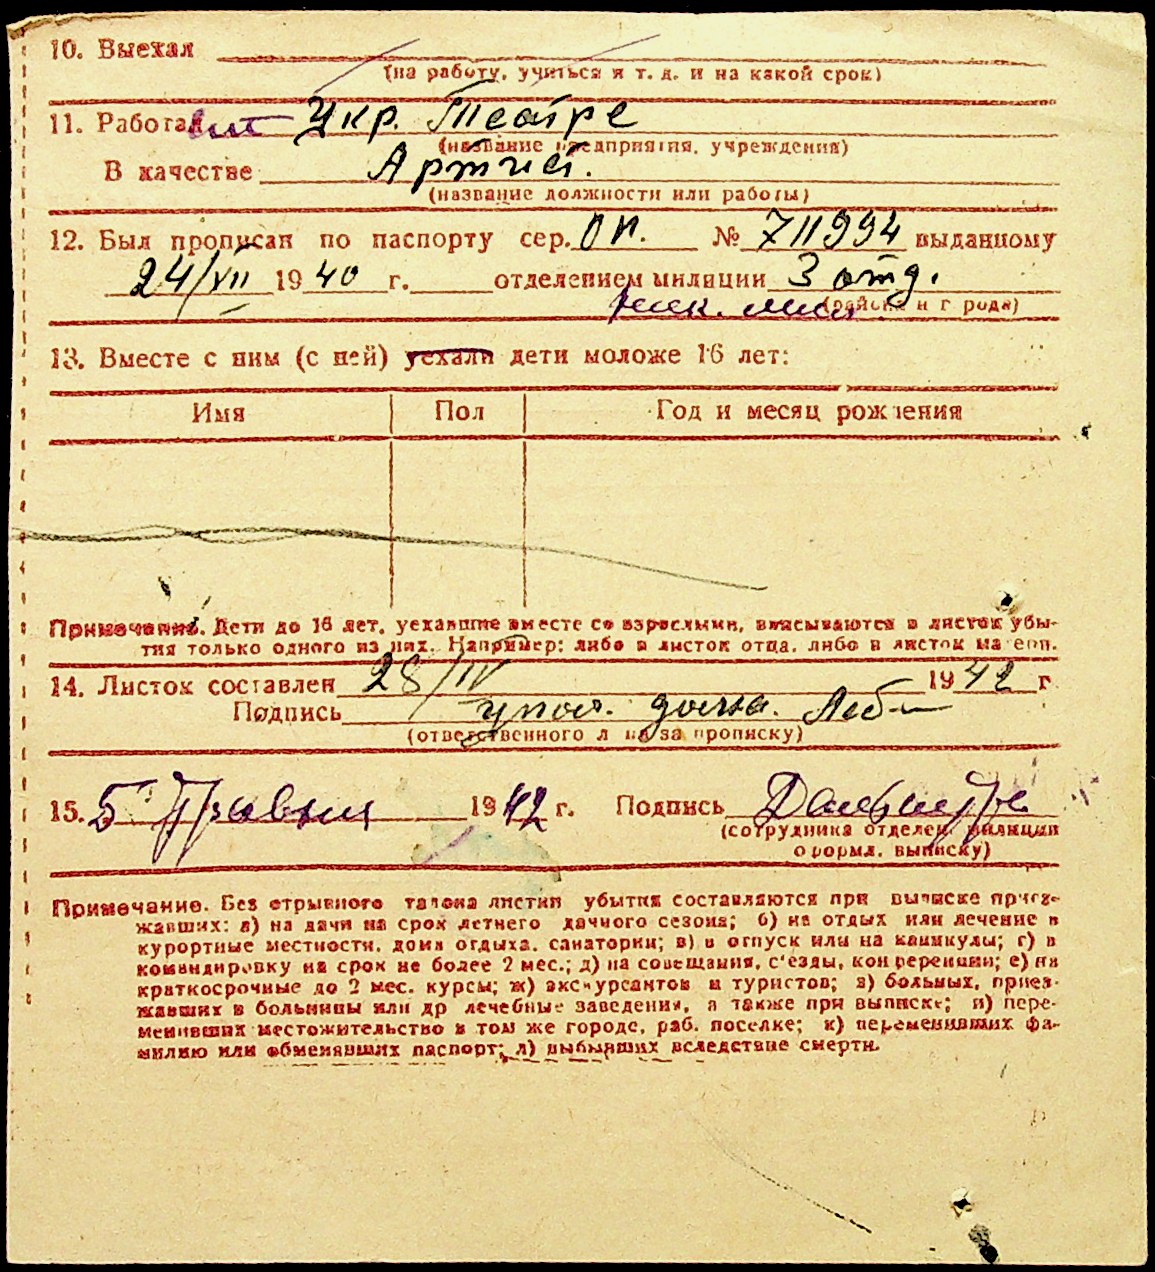 10. Выехал
(на работу, учиться и т. д. и на какой срок)
11. Работал Укр. Театре
(название предприятия, учреждения)
В качестве Артист.
(название должности или работы)
12. Был прописан по паспорту сер. ОП. № 711994 выданному
24/VII 1940 г. отделением милиции 3 отд.
(района и города)
13. Вместе с ним (с ней) уехали дети моложе 16 лет:
Имя Пол Год и месяц рождения
Примечание. Дети до 16 лет, уехавшие вместе со взрослыми, вписываются в листок убы-
тия только одного из них. Например: либо в листок отца, либо в листок матери.
14. Листок составлен 28/IV 1942 г
Подпись упол. дома.
(ответственного лица за прописку)
15. 5 Травня 1942 г. Подпись
(сотрудника отделен. милиции
оформл. выписку)
Примечание. Без отрывного талона листки убытия составляются при выписке приез-
жавших: а) на дачи на срок летнего дачного сезона; б) на отдых или лечение в
курортные местности, дома отдыха, санатории; в) в отпуск или на каникулы; г) в
командировку на срок не более 2 мес.; д) на совещания, с'езды, конференции; е) на
краткосрочные до 2 мес. курсы; ж) экскурсантов и туристов; з) больных, приез-
жавших в больницы или др лечебные заведения, а также при выписке; и) пере-
менивших местожительство в том же городе, раб. поселке; к) переменивших фа-
милию или обменявших паспорт; л) выбывших вследствие смерти.